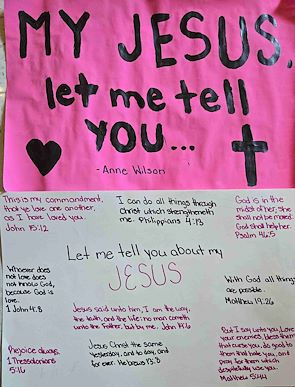 MY JESUS,
let me tell
YOU...
- Anne Wilson
This is my commandment,
that ye love one another,
as I have loved you.
John 15:12
I can do all things through
Christ which strengtheneth
me. Philippians 4:13
God is in the
midst of her; she
shall not be moved.
God shall help her.
Psalm 46:5
Let me tell you about my
JESUS
Whoever does
not love does
not know God,
because God is
love.
1 John 4:8
With God all things
are possible.
Matthew 19:26
Jesus said unto him, I am the way,
the truth, and the life: no man cometh
unto the Father, but by me. John 14:6
Rejoice always,
1 Thessalonians
5:16
Jesus Christ the same
yesterday, and to day, and
for ever. Hebrews 13:8
But I say unto you, Love
your enemies, bless them
that curse you, do good to
them that hate you, and
pray for them which
despitefully use you.
Matthew 5:44